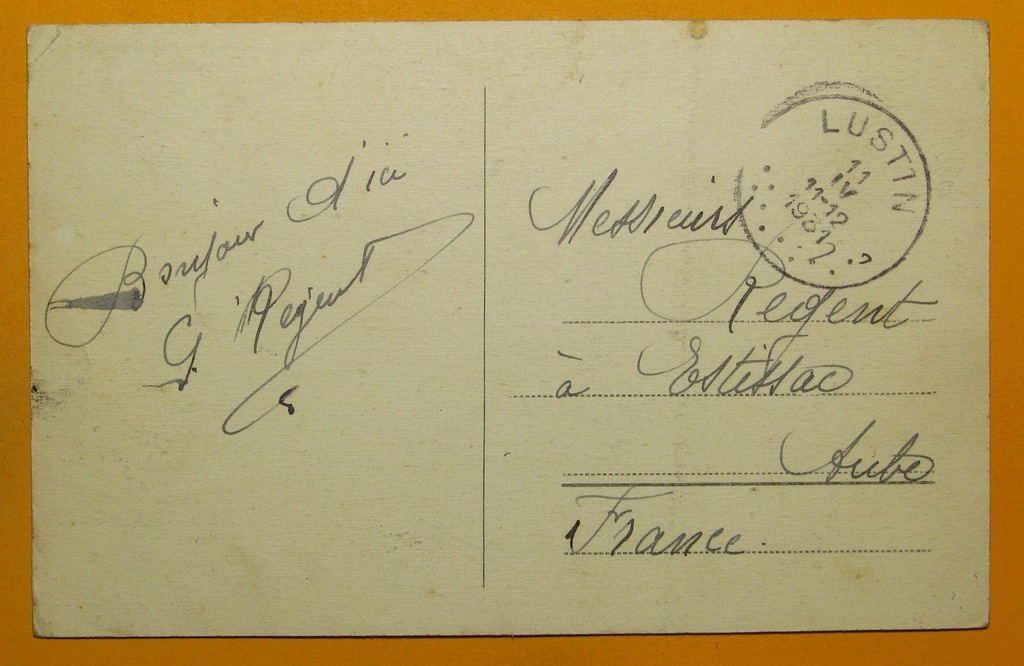 Bonjour d'ici
G. Régent
LUSTIN
11
IV
11-12
Messieurs
Regent
à Estissac
Aube
France.